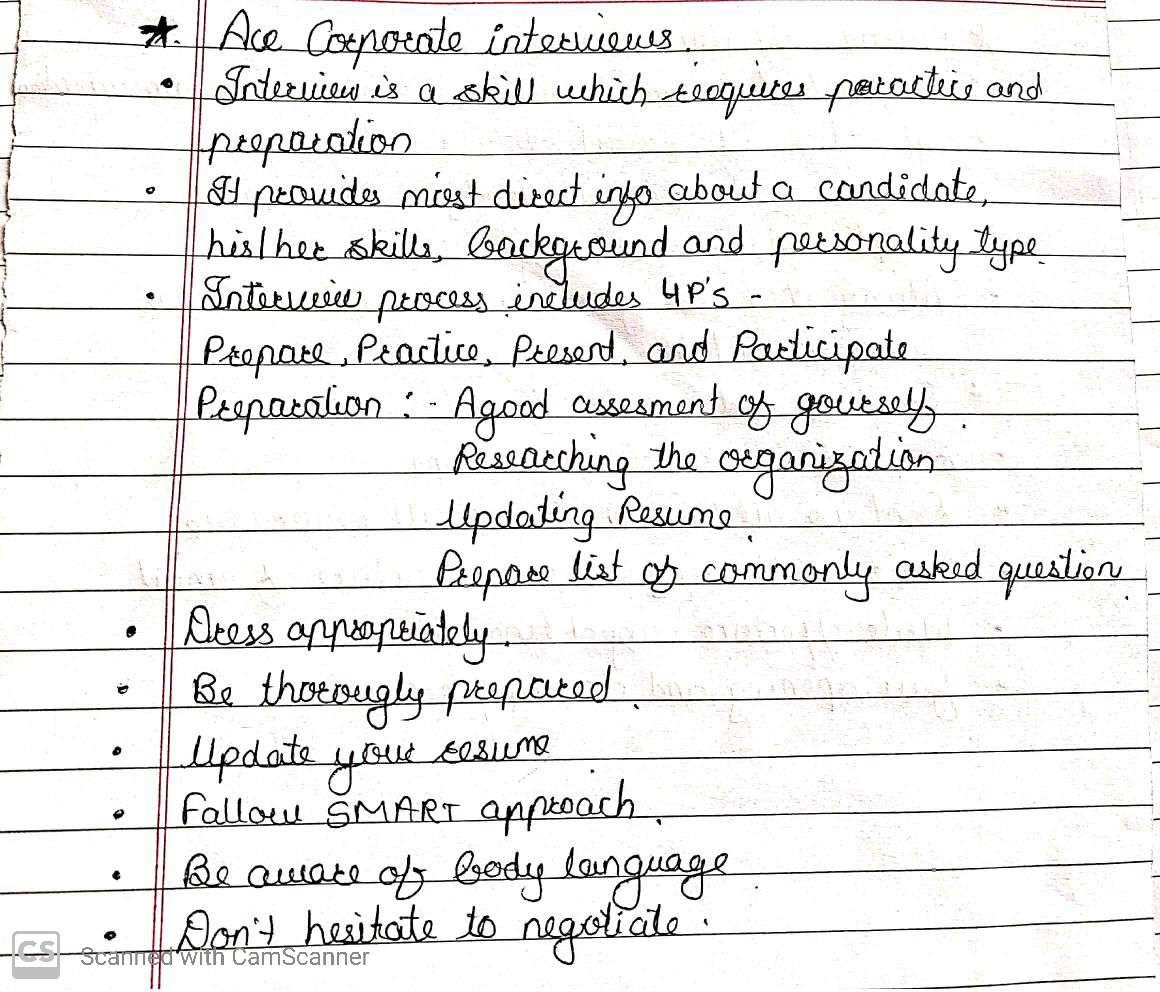 ★. Ace Corporate interviews.
• Interview is a skill which reoquires practice and
preparation
• It provides most direct info about a candidate,
his/her skills, background and personality type.
• Interview process includes 4P's -
Prepare, Practice, Present, and Participate
Preparation :- A good assesment of yourself.
Researching the organization
Updating Resume.
Prepare list of commonly asked question.
• Dress appropriately.
• Be thorougly prepared.
• Update your resume.
• Fallow SMART approach.
• Be aware of body language.
• Don't hesitate to negotiate.
CS Scanned with CamScanner